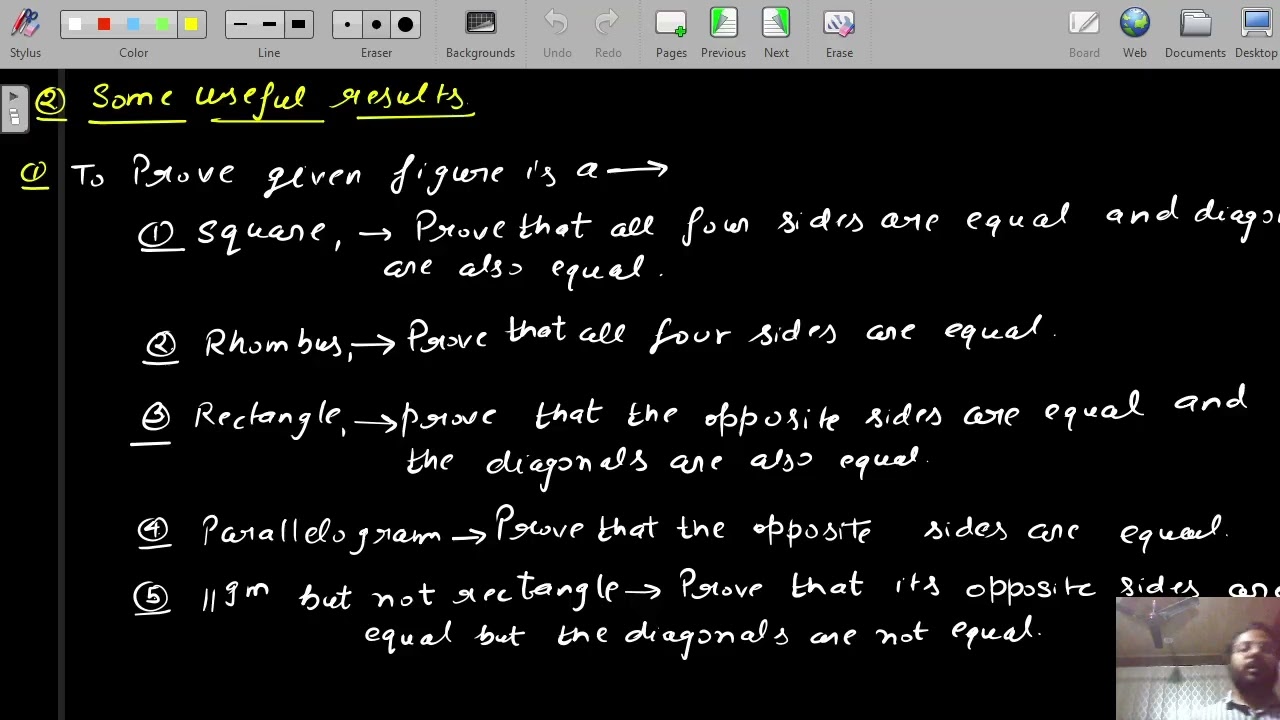 Stylus Color Line Eraser Backgrounds Undo Redo Pages Previous Next Erase Board Web Documents Desktop
② Some useful results.
① To Prove given figure is a →
① Square, → Prove that all four sides are equal and diago
are also equal.
② Rhombus, → Prove that all four sides are equal.
③ Rectangle, → prove that the opposite sides are equal and
the diagonals are also equal.
④ Parallelogram → Prove that the opposite sides are equal.
⑤ ||gm but not rectangle → Prove that its opposite sides are
equal but the diagonals are not equal.